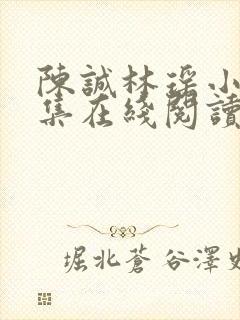 陳誠林瑶小
集在綫閱讀
堀北蒼谷澤